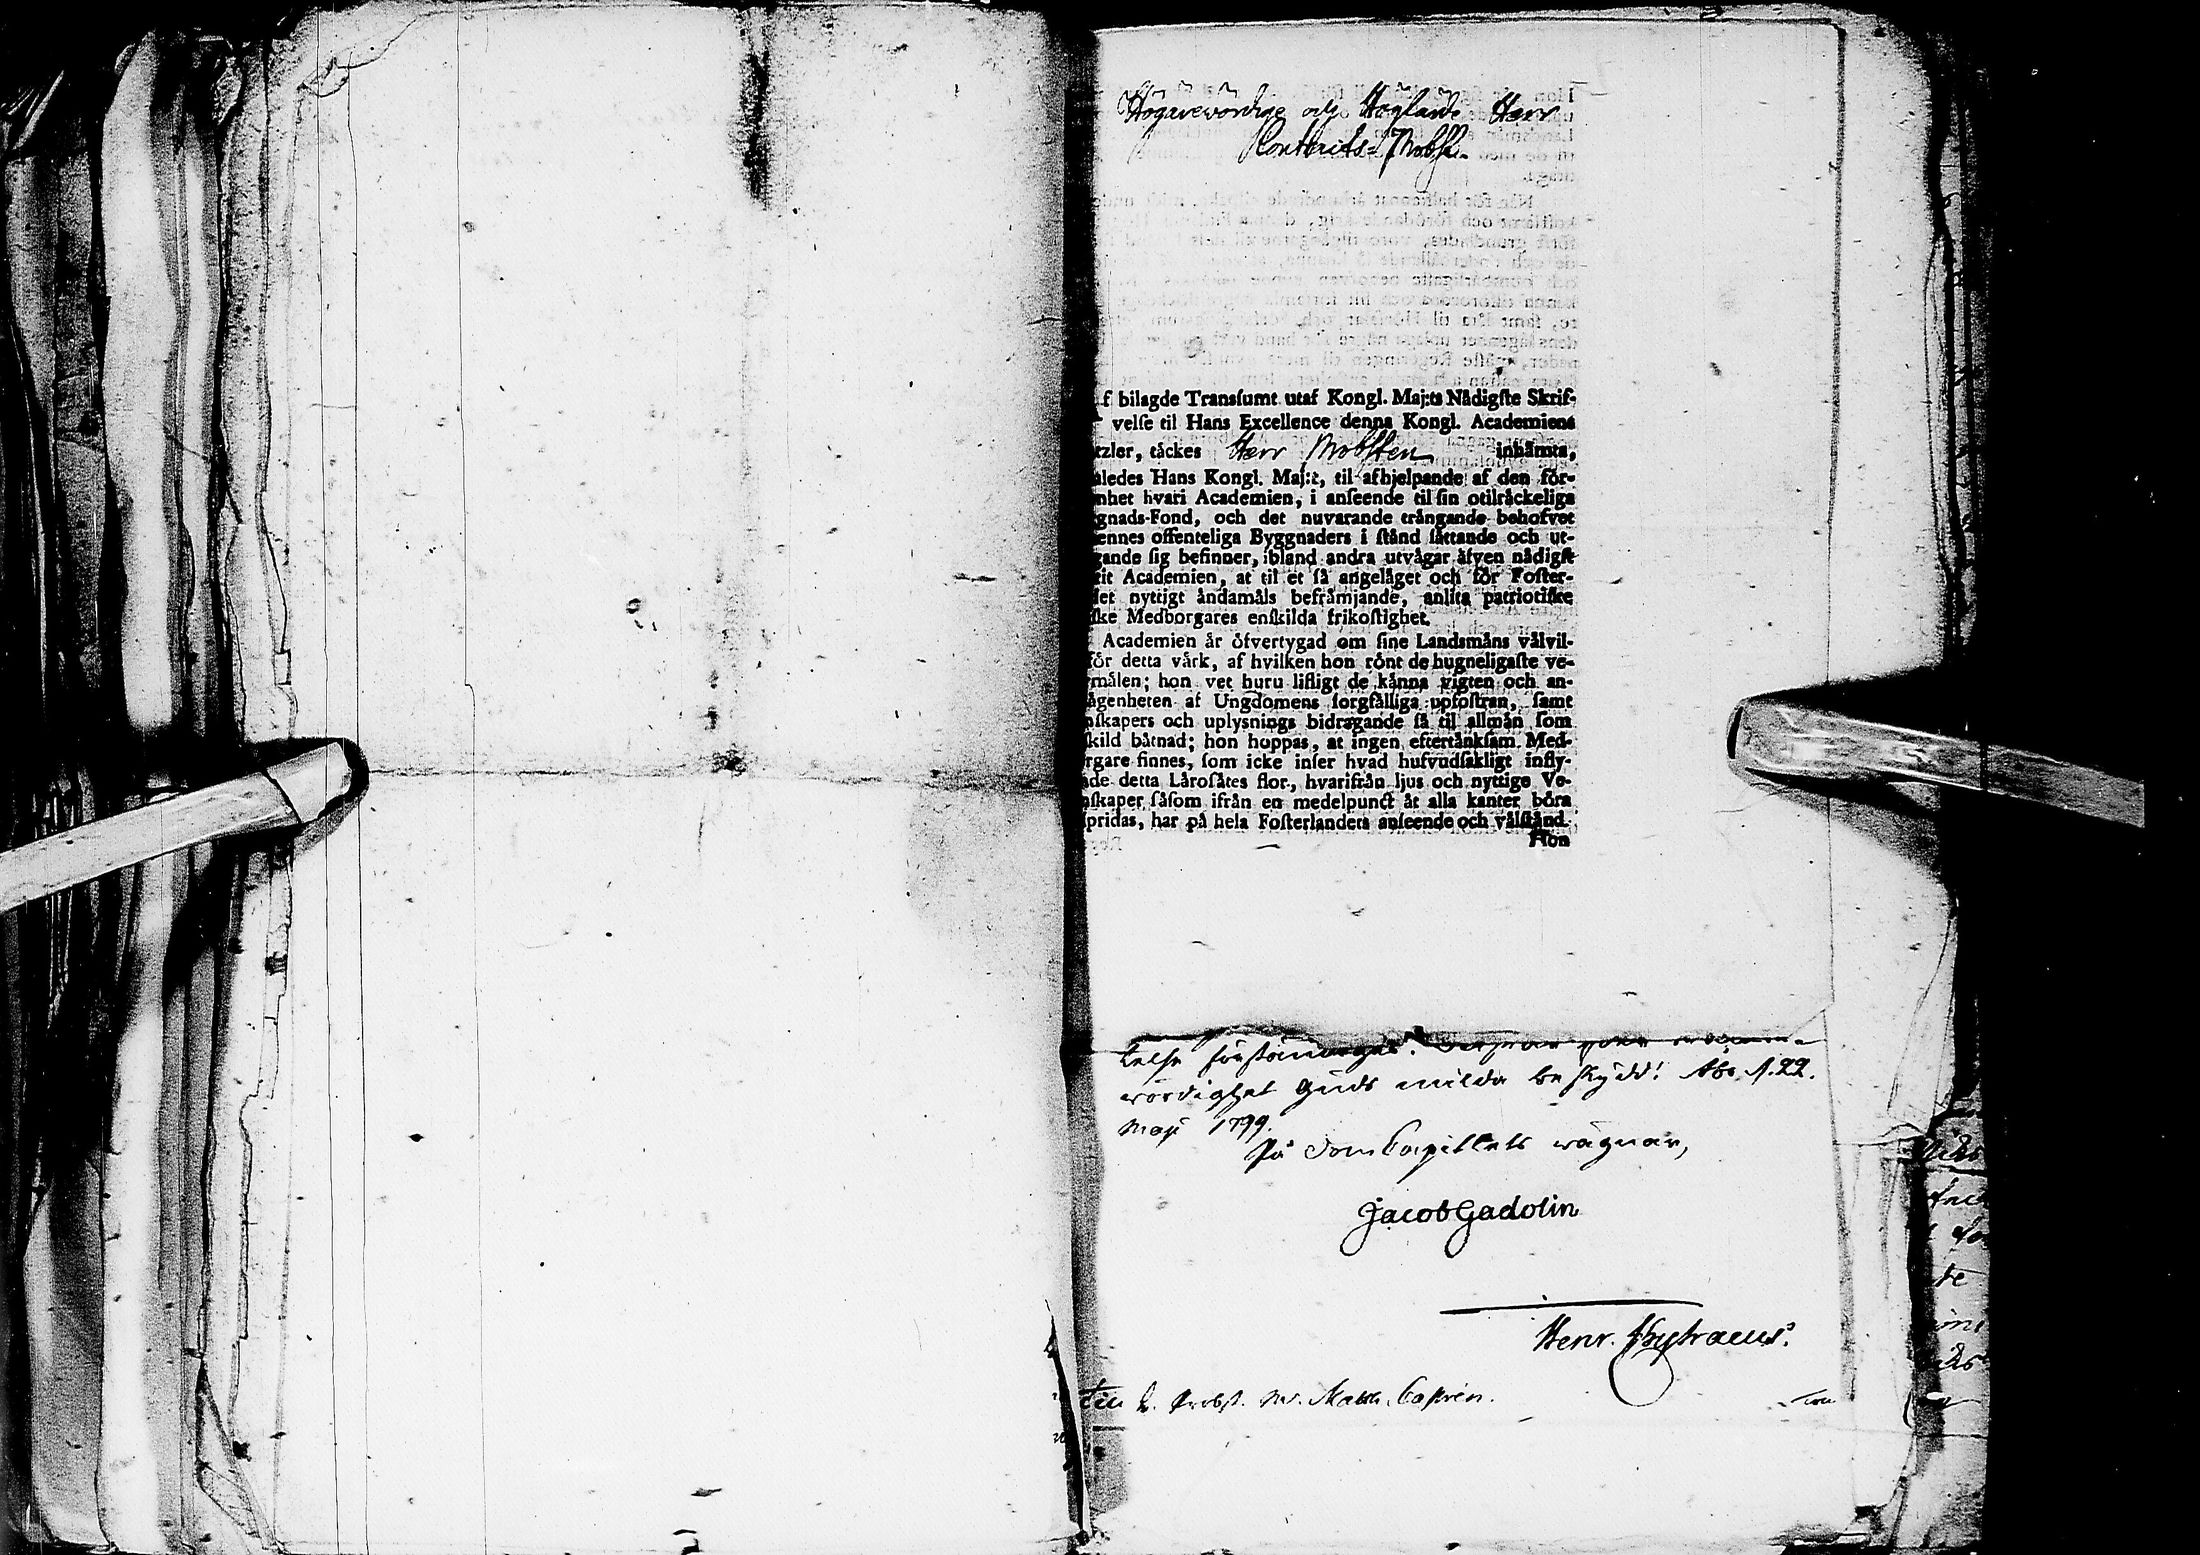 Högärewördige och Höglärde Herr
Contracts-Probst.
Af bilagde Transſumt utaf Kongl. Maj:ts Nådigſte Skrif-
velſe til Hans Excellence denna Kongl. Academiens
tzler, tåckes Herr Probſten inhåmta,
åledes Hans Kongl. Maj:t, til afhjelpande af den för-
nhet hvari Academien, i anſeende til ſin otilråckeliga
gnads-Fond, och det nuvarande trångande behofvet
ennes offenteliga Byggnaders i ſtånd ſåttande och ut-
gande ſig befinner, ibland andra utvågar åfven nådigſt
tit Academien, at til et ſå angelåget och för Foſter-
det nyttigt åndamåls befråmjande, anlita patriotiſke
ſke Medborgares enſkilda frikoſtighet.
Academien år öfvertygad om ſine Landsmåns vålvil-
för detta vårk, af hvilken hon rönt de hugneligaſte ve-
målen; hon vet huru lifligt de kånna vigten och an-
ågenheten af Ungdomens ſorgfålliga upfoſtran, ſamt
nſkapers och uplysnings bidragande ſå til allmån ſom
ſkild båtnad; hon hoppas, at ingen eftertånkſam Med-
rgare finnes, ſom icke inſer hvad hufvudſakligt infly-
ade detta Låroſåtes flor, hvarifrån ljus och nyttige Ve-
nſkaper ſåſom ifrån en medelpunct åt alla kanter böra
ſpridas, har på hela Foſterlandets anſeende och vålſtånd.
Hon
wördighet Guds milda beskydd! Åbo d. 22.
Maji 1799.
På DomCapitlets wägnar,
Jacob Gadolin
Henr.
Till H. Probst. M. Matth. Castrén.